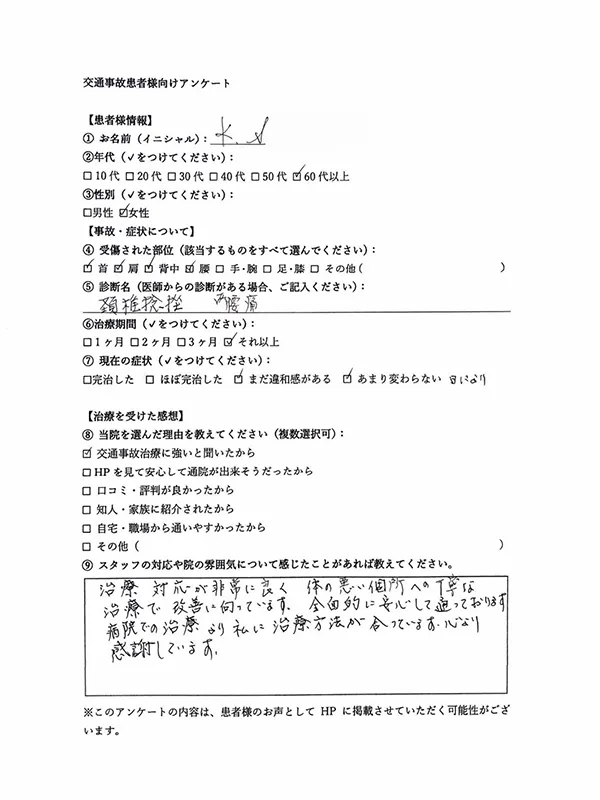 交通事故患者様向けアンケート
【患者様情報】
① お名前(イニシャル): K. A
②年代(✓をつけてください):
□10代 □20代 □30代 □40代 □50代 ☑60代以上
③性別(✓をつけてください):
□男性 ☑女性
【事故・症状について】
④ 受傷された部位(該当するものをすべて選んでください):
☑首 ☑肩 ☑背中 ☑腰 □手・腕 □足・膝 □その他( )
⑤ 診断名(医師からの診断がある場合、ご記入ください):
頚椎捻挫 腰痛
⑥治療期間(✓をつけてください):
□1ヶ月 □2ヶ月 □3ヶ月 ☑それ以上
⑦ 現在の症状(✓をつけてください):
□完治した □ほぼ完治した ☑まだ違和感がある ☑あまり変わらない 日により
【治療を受けた感想】
⑧ 当院を選んだ理由を教えてください(複数選択可):
☑交通事故治療に強いと聞いたから
□HPを見て安心して通院が出来そうだったから
□口コミ・評判が良かったから
□知人・家族に紹介されたから
□自宅・職場から通いやすかったから
□その他( )
⑨ スタッフの対応や院の雰囲気について感じたことがあれば教えてください。
治療 対応が非常に良く 体の悪い個所への丁寧な
治療で 改善に向っています。全面的に安心して通っております
病院での治療より私に治療方法が合っています。心より
感謝しています。
※このアンケートの内容は、患者様のお声としてHPに掲載させていただく可能性がござ
います。